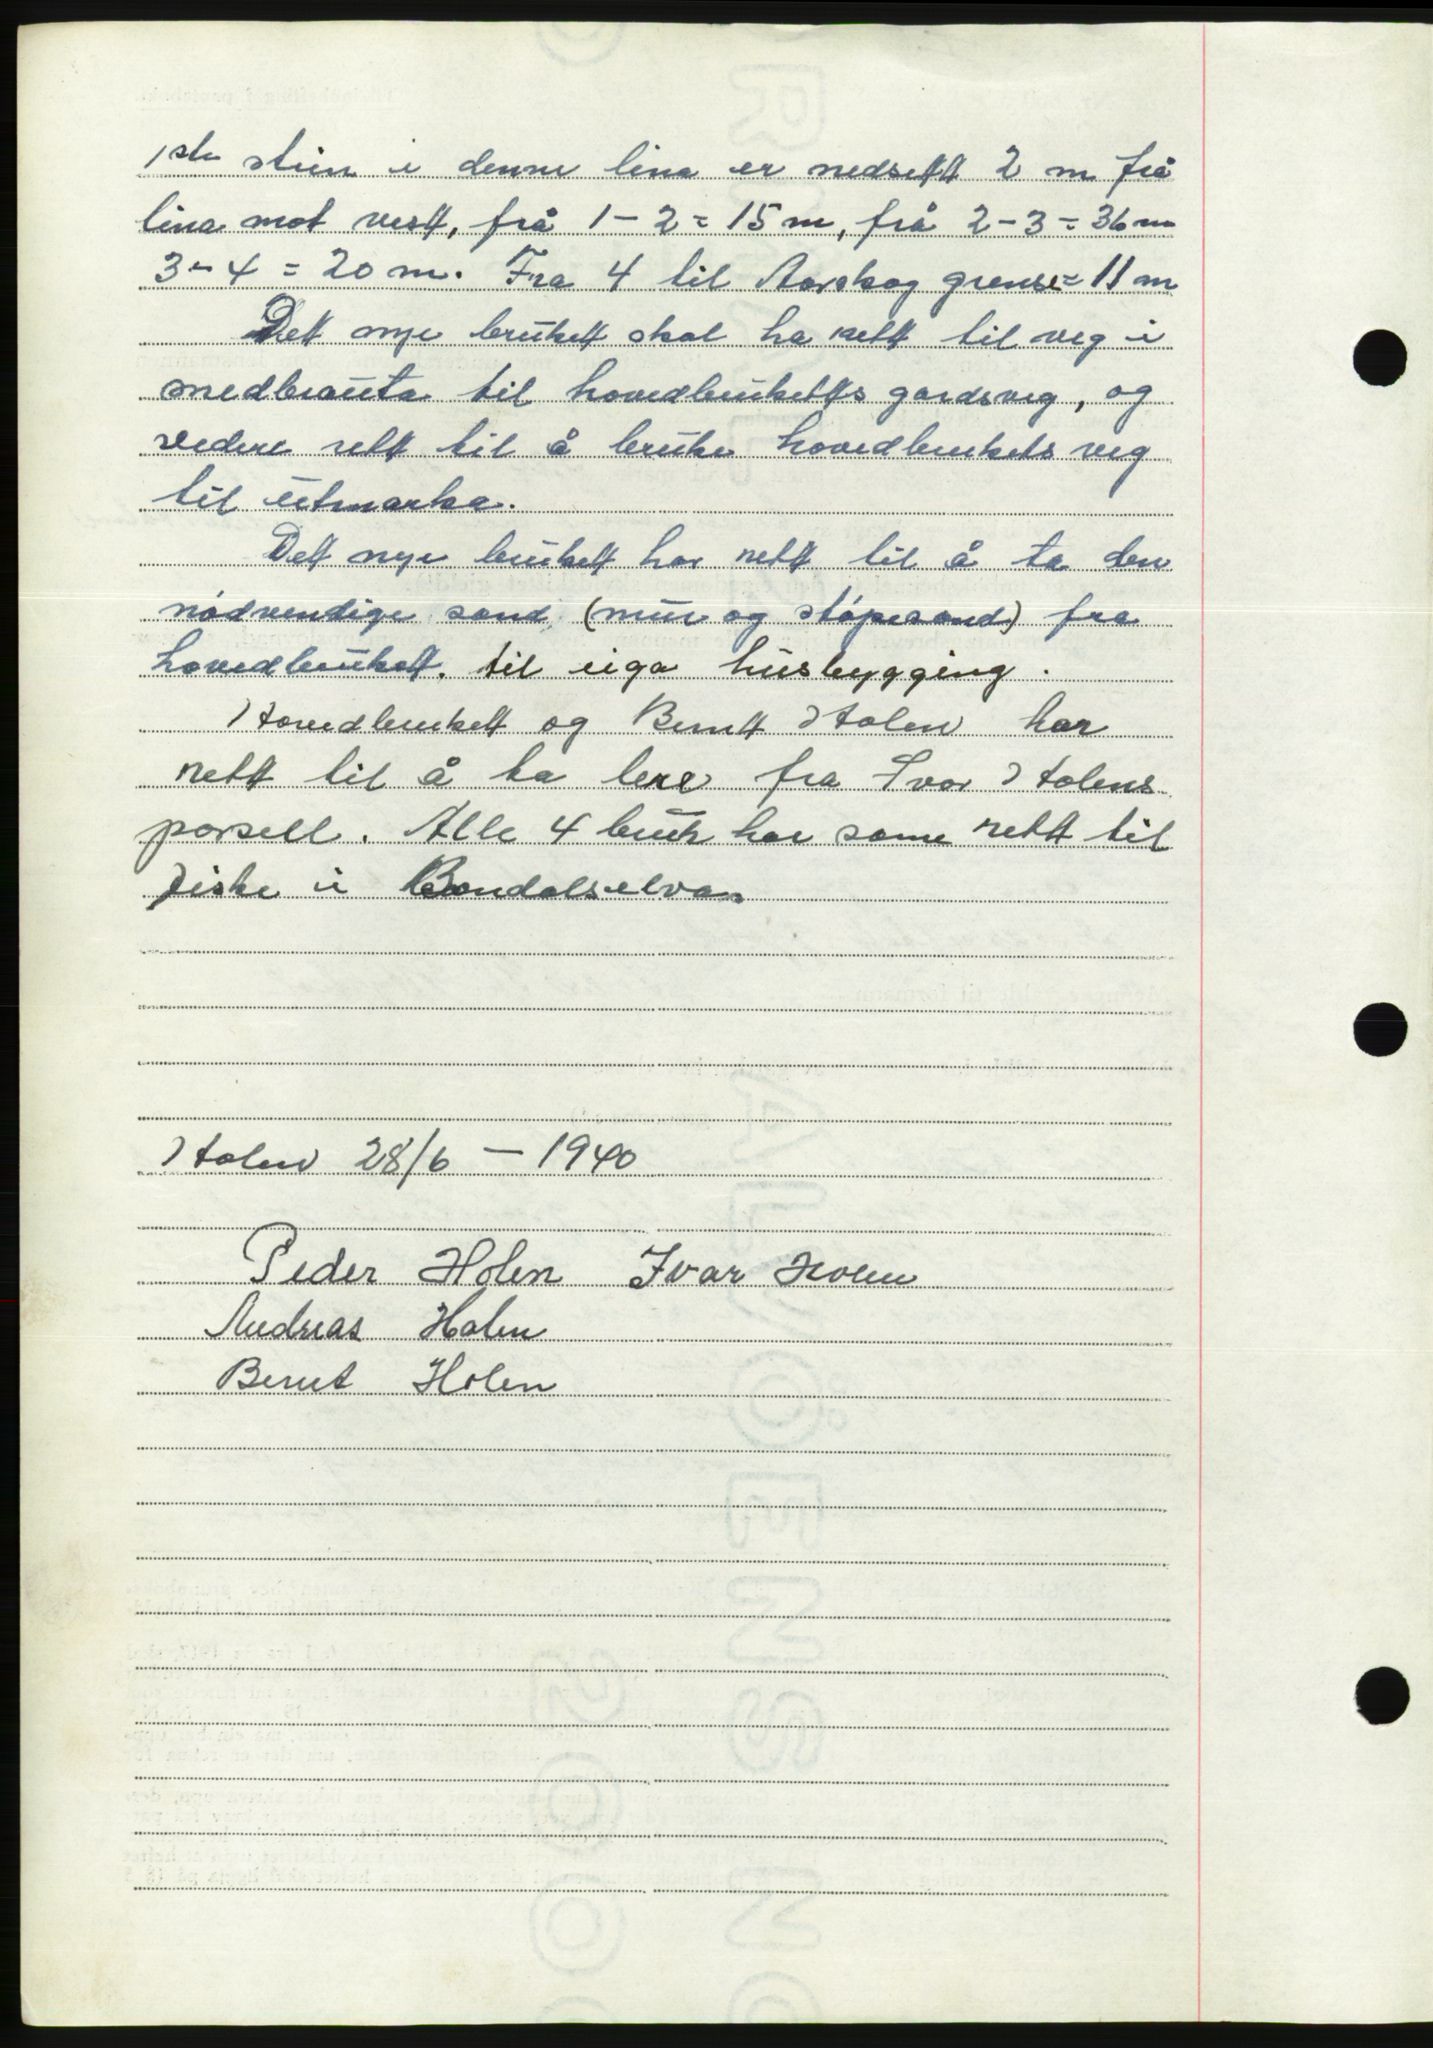 1ste stein i denne lina er nedsett 2 m frå
lina mot vest, frå 1-2 = 15 m, frå 2-3 = 36 m
3-4 = 20 m. Fra 4 til Aarskog grense = 11 m
Dett nye bruket skal ha rett til veg i
nedbrauta til hovedbruketts gardsveg, og
videre rett til å bruke hovedbrukets veg
til utmarka.
Dett nye bruket har rett til å ta den
nødvendige sand (mur og støpesand) fra
hovedbruket. til eiga husbygging.
Hovedbrukett og Bernt Holen har
rett til å ta leire fra Ivar Holens
parsell. Alle 4 bruk har same rett til
fiske i Bondalselva.
Holen 28/6 - 1940
Peder Holen Ivar Holen
Andreas Holen
Bernt Holen